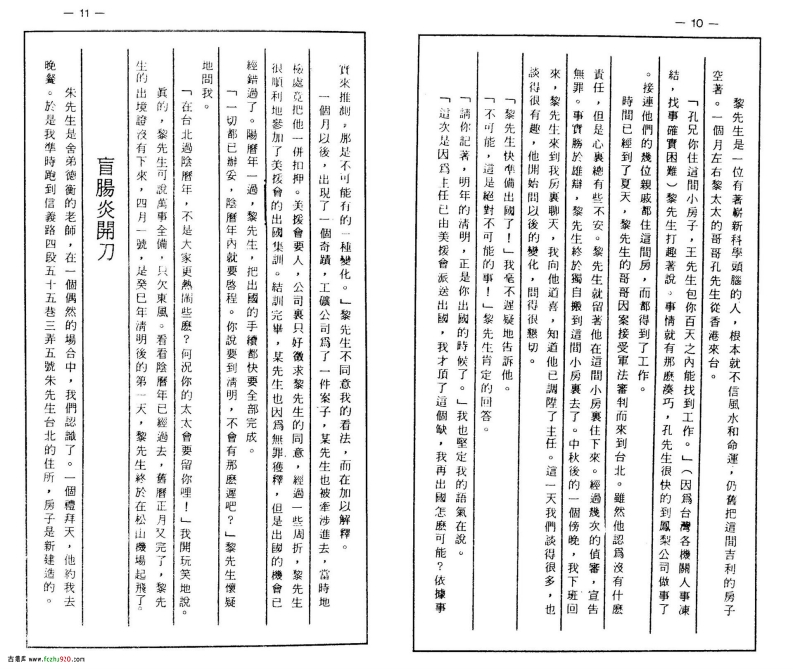 — 10 —
黎先生是一位有著嶄新科學頭腦的人，根本就不信風水和命運，仍舊把這間吉利的房子
空著。一個月左右黎太太的哥哥孔先生從香港來台。
「孔兄你住這間小房子，王先生包你百天之內能找到工作。」（因爲台灣各機關人事凍
結，找事確實困難）黎先生打趣著說。事情就有那麽湊巧，孔先生很快的到鳳梨公司做事了
。接連他們的幾位親戚都住這間房，而都得到了工作。
時間已經到了夏天，黎先生的哥哥因案接受軍法審判而來到台北。雖然他認爲沒有什麽
責任，但是心裏總有些不安。黎先生就留著他在這間小房裏住下來。經過幾次的偵審，宣告
無罪。事實勝於雄辯，黎先生終於獨自搬到這間小房裏去了。中秋後的一個傍晚，我下班回
來，黎先生來到我房裏聊天，我向他道喜，知道他已調陞了主任。這一天我們談得很多，也
談得很有趣，他開始問以後的變化，問得很懇切。
「黎先生快準備出國了！」我毫不遲疑地告訴他。
「不可能，這是絕對不可能的事！」黎先生肯定的回答。
「請你記著，明年的清明，正是你出國的時候了。」我也堅定我的語氣在說。
「這次是因爲主任已由美援會派送出國，我才頂了這個缺，我再出國怎麽可能？依據事
— 11 —
實來推測，那是不可能有的一種變化。」黎先生不同意我的看法，而在加以解釋。
一個月以後，出現了一個奇蹟，工礦公司爲了一件案子，某先生也被牽涉進去，當時地
檢處竟把他一併扣押。美援會要人，公司裏只好徵求黎先生的同意，經過一些周折，黎先生
很順利地參加了美援會的出國集訓。結訓完畢，某先生也因爲無罪獲釋，但是出國的機會已
經錯過了。陽曆年一過，黎先生，把出國的手續都快要全部完成。
「一切都已辦妥，陰曆年內就要啓程。你說要到清明，不會有那麽遲吧？」黎先生懷疑
地問我。
「在台北過陰曆年，不是大家更熱鬧些麽？何況你的太太會要留你哩！」我開玩笑地說。
眞的，黎先生可說萬事全備，只欠東風。看看陰曆年已經過去，舊曆正月又完了，黎先
生的出境證沒有下來，四月一號，是癸巳年清明後的第一天，黎先生終於在松山機場起飛了。
盲腸炎開刀
朱先生是舍弟德衡的老師，在一個偶然的場合中，我們認識了。一個禮拜天，他約我去
晚餐。於是我準時跑到信義路四段五十五巷三弄五號朱先生台北的住所，房子是新建造的。
www.fczhy920.com